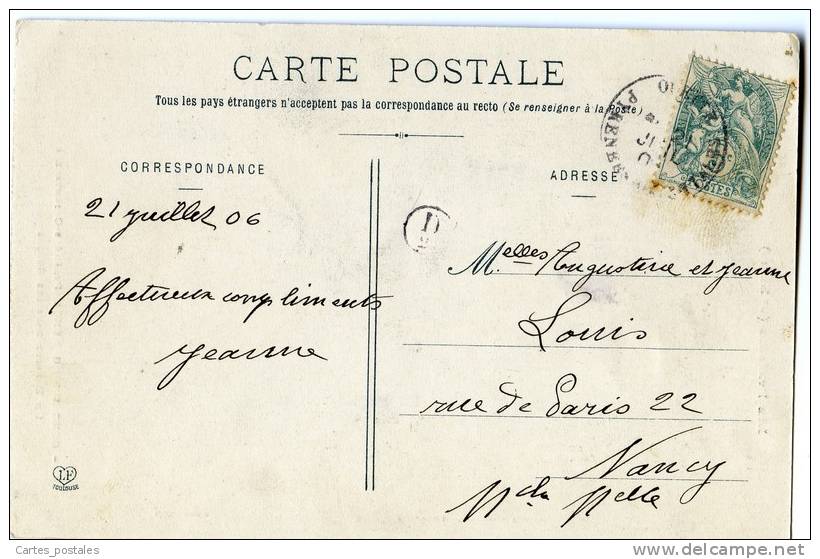 CARTE POSTALE
Tous les pays étrangers n'acceptent pas la correspondance au recto (Se renseigner à la Poste)
CORRESPONDANCE
ADRESSE
21 juillet 06
Affectueux compliments
Jeanne
Melles Augustine et Jeanne
Louis
rue de Paris 22
Nancy
Mthe Melle
D
POSTES
LF
TOULOUSE
Cartes_postales
www.delcampe.net